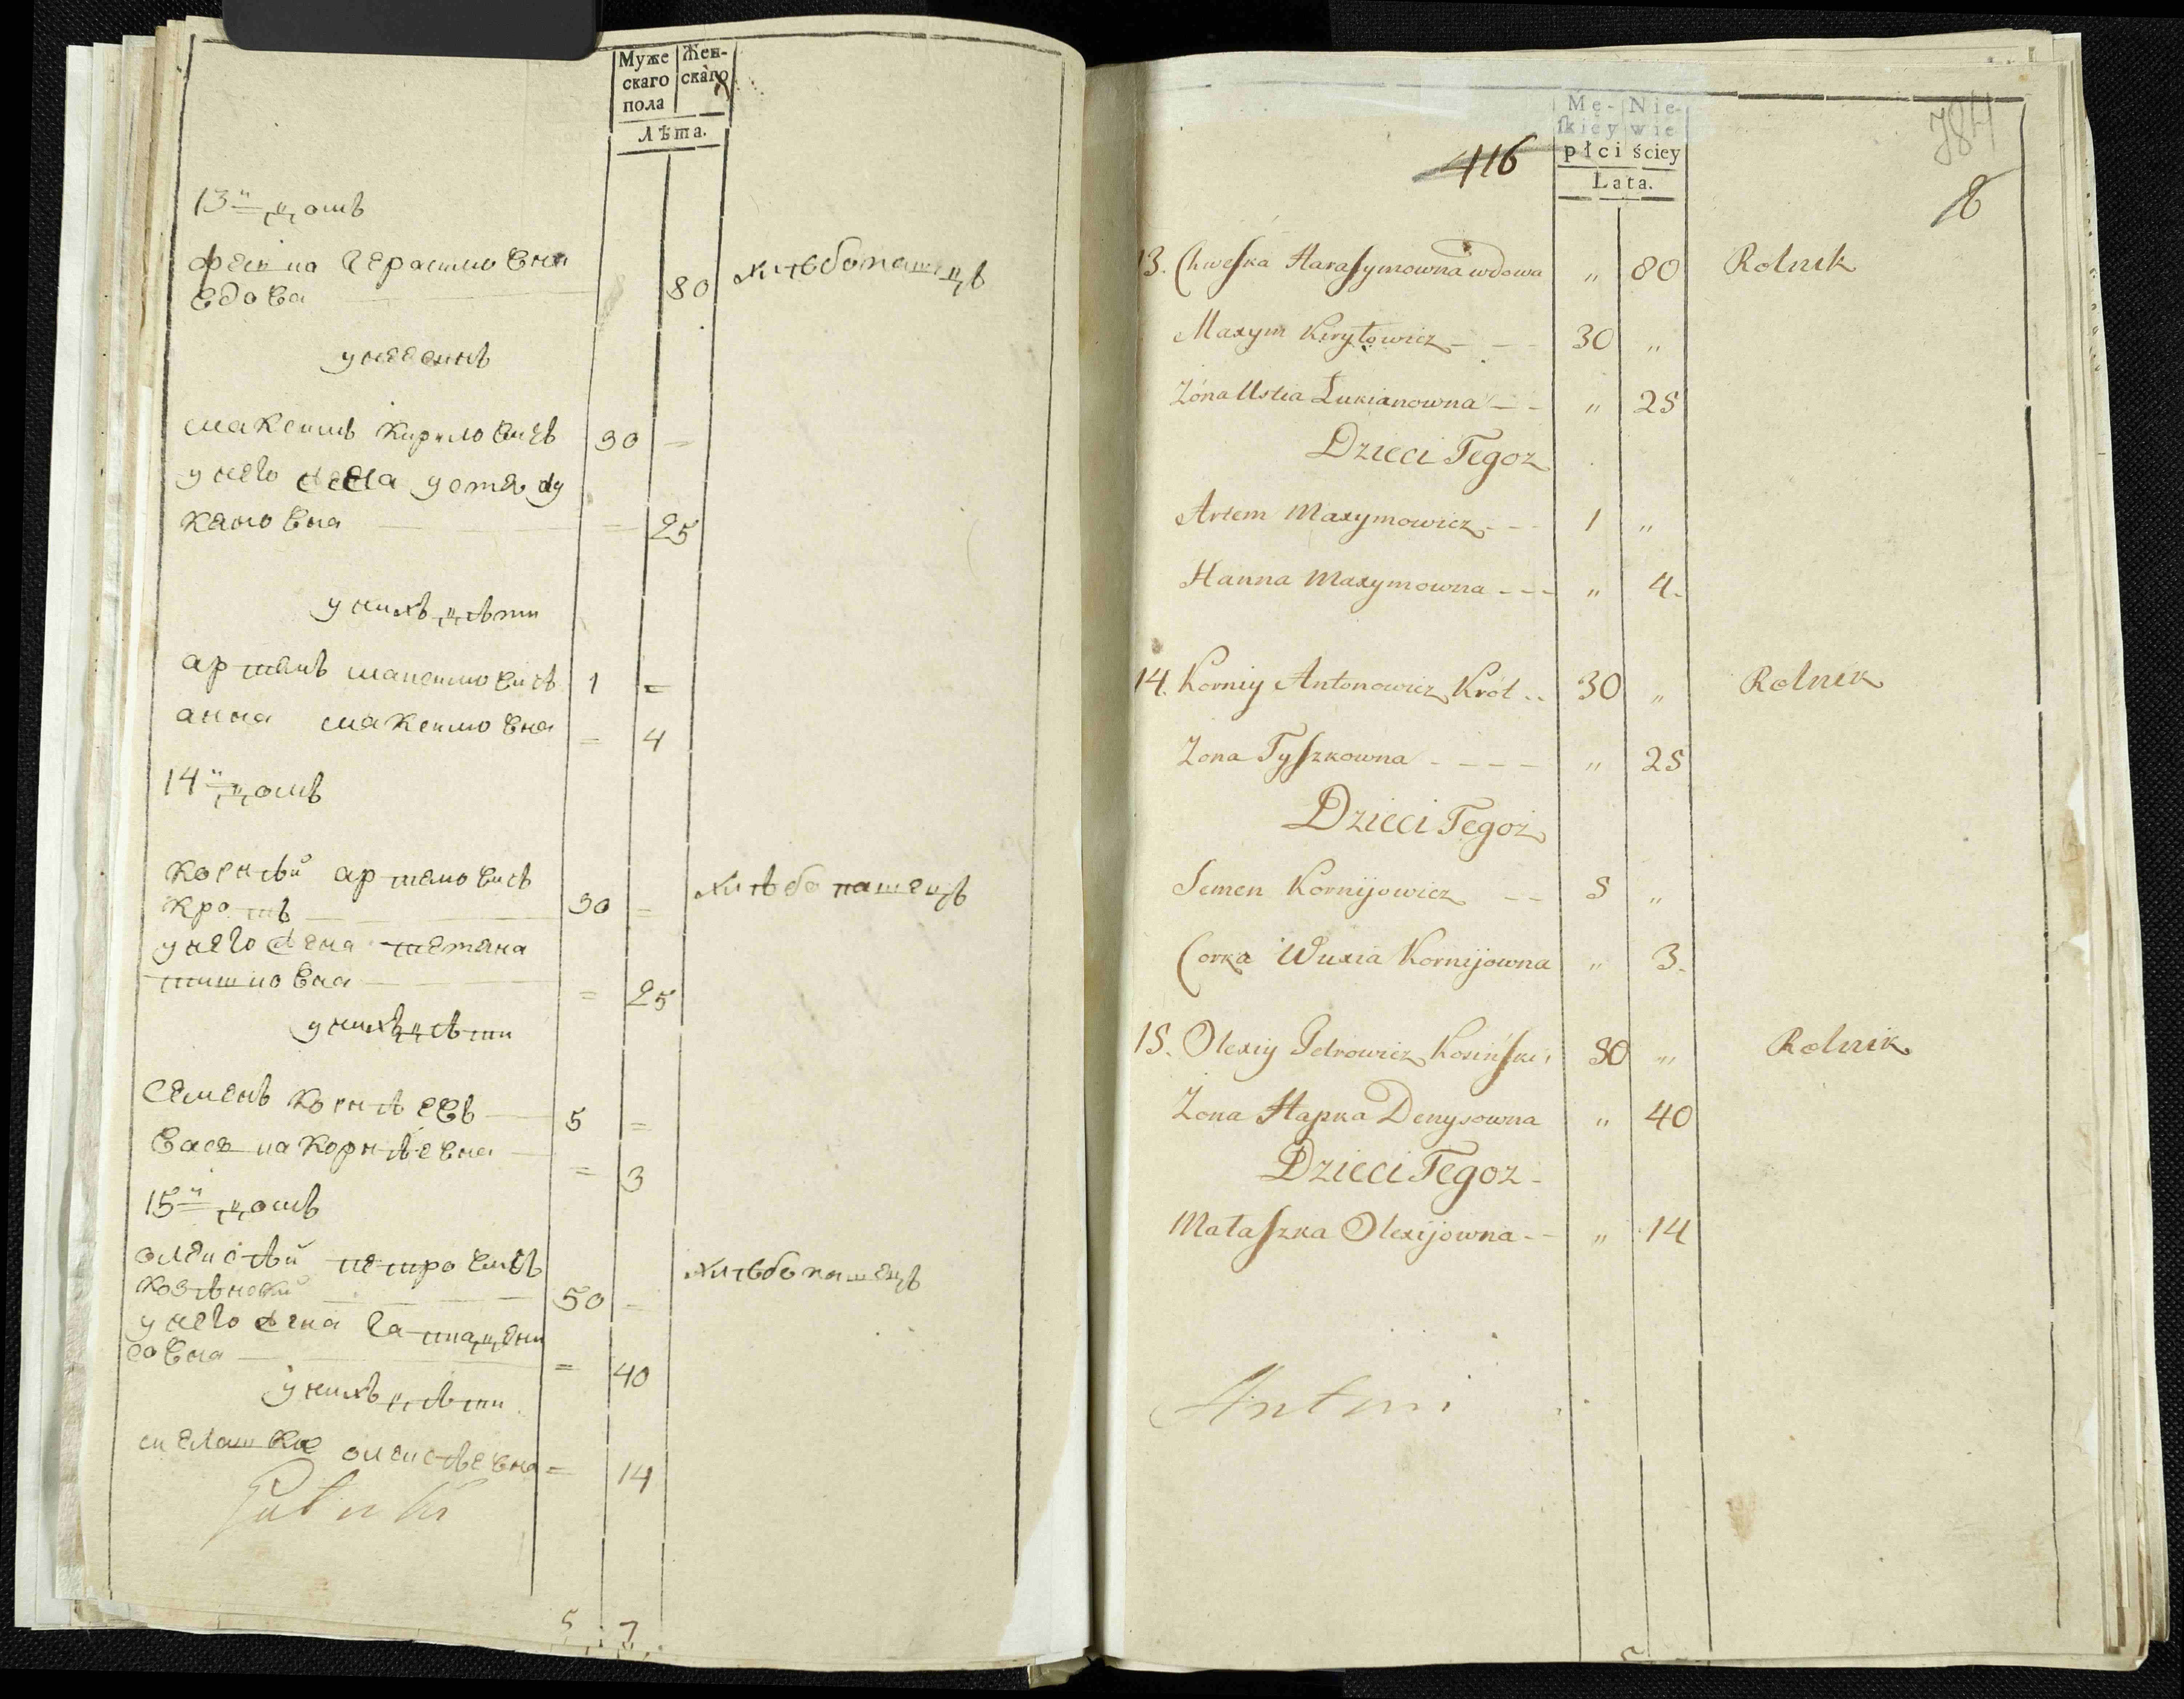 Муже
скаго
пола
Жен-
скаго
Лѣта.
13й домъ
Феська Герасимовна
вдова 80 хлѣбопашецъ
у неесинъ
максимъ Кириловичъ 30 =
у него жена устя лу
кяновна = 25
у нихъ дѣти
артемъ максимовичъ 1 =
анна максимовна = 4
14й домъ
корнѣй артемовичъ
кроль 30 = хлѣбопашецъ
у него жена тетяна
тишковна = 25
у нихъ дѣти
Семенъ корнѣевъ 5 =
васька корнѣевна = 3
15й домъ
олексѣй петровичъ
козѣнский 50 = хлѣбопашецъ
у него жена гапка дени
совна = 40
у нихъ дѣти
мелашка олексѣевна = 14
5 7
Mę-
ſkiey
płci
Nie-
wie
ściey
Lata.
416
784
8
13. Chweſka Haraſymowna wdowa " 80 Rolnik
Maxym Kiryłowicz - - - 30 "
Żona Ustia Łukianowna - - " 25
Dzieci Tegoż
Artem Maxymowicz - - - 1 "
Hanna Maxymowna - - - " 4.
14. Korniy Antonowicz Król .. 30 " Rolnik
Żona Tyſzkowna - - - - " 25
Dzieci Tegoż
Semen Kornijowicz - - 5 "
Corka Wuxia Kornijowna " 3.
15. Olexiy Petrowicz Kosińſki 50 " Rolnik
Żona Hapka Denysowna " 40
Dzieci Tegoż -
Małaſzka Olexijowna - - " 14
Antoni